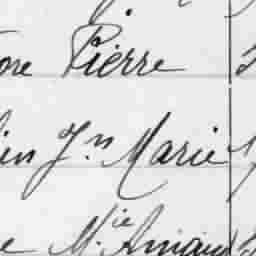 ore Pierre
ien Jn Marie
e Mie Amand